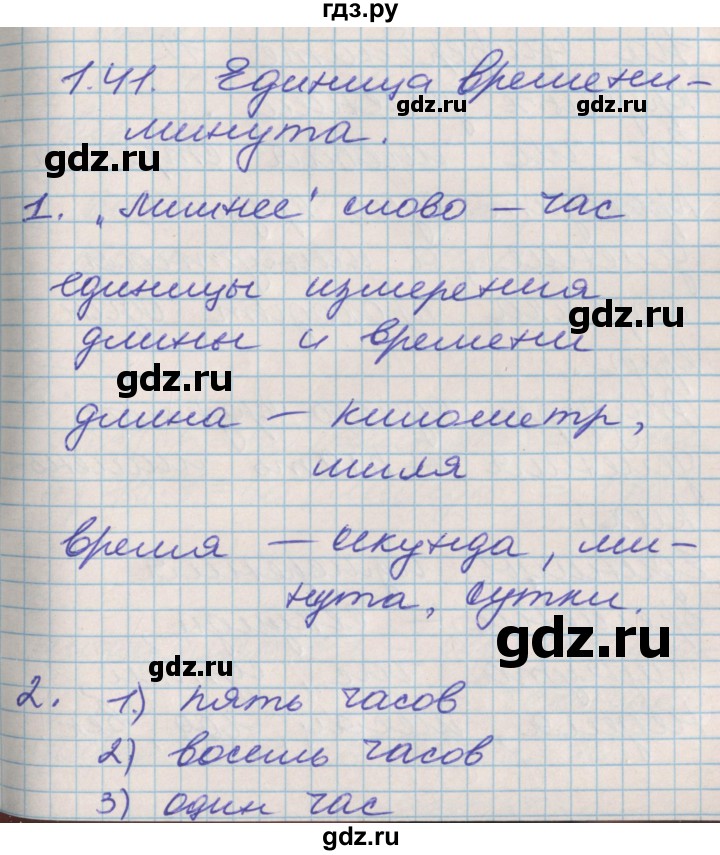 гдз.ру
1.41. Единица времени-
gdz.ru gdz.ru
минута.
gdz.ru
1. „Лишнее" слово – час
единицы измерения
gdz.ru
длины и времени
gdz.ru
длина – километр,
миля
время – секунда, ми-
нута, сутки.
gdz.ru
gdz.ru
2. 1.) пять часов
2) восемь часов
3) один час
gdz.ru